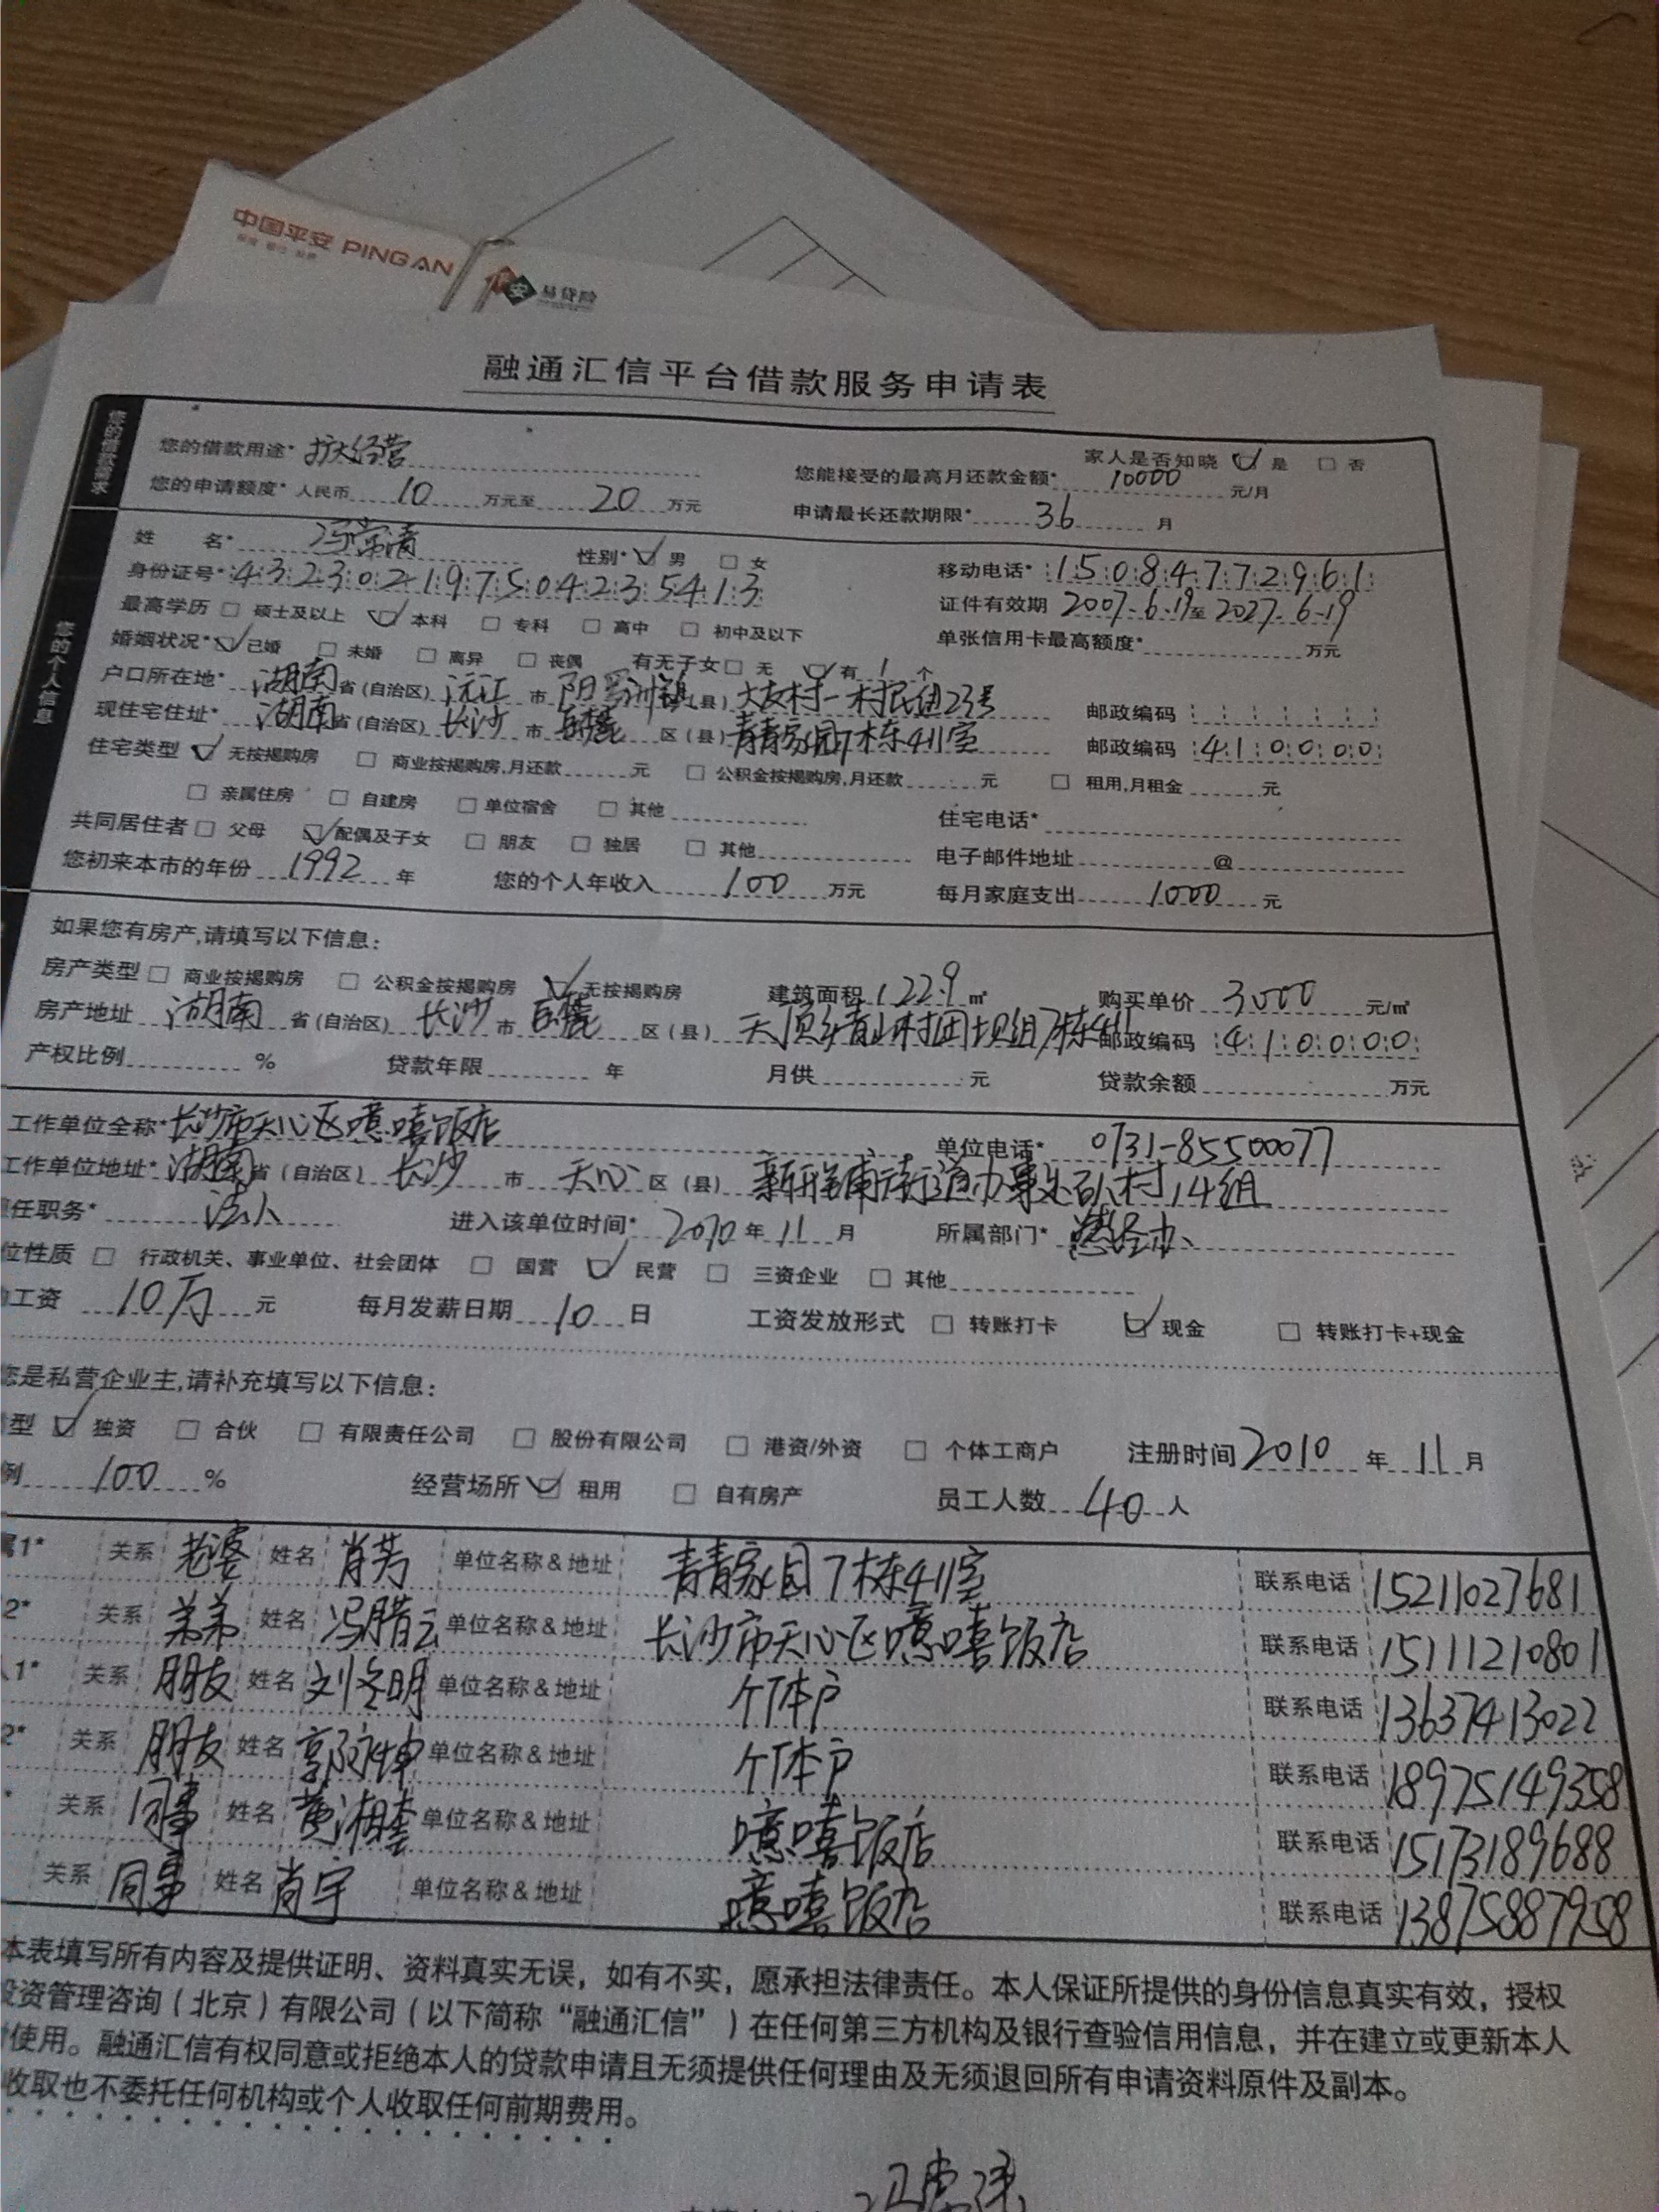 中国平安 PINGAN
保险·银行·投资
安 易贷险
融通汇信平台借款服务申请表
您的借款需求
您的借款用途* 扩大经营 家人是否知晓 ☑ 是 □ 否
您的申请额度* 人民币 10 万元至 20 万元 您能接受的最高月还款金额* 10000 元/月
申请最长还款期限* 36 月
您的个人信息
姓 名* 冯常清 性别* ☑ 男 □ 女 移动电话* 15084772961
身份证号* 432302197504235413 证件有效期 2007.6.19至2027.6.19
最高学历 □ 硕士及以上 ☑ 本科 □ 专科 □ 高中 □ 初中及以下 单张信用卡最高额度* 万元
婚姻状况* ☑ 已婚 □ 未婚 □ 离异 □ 丧偶 有无子女 □ 无 ☑ 有 1 个
户口所在地* 湖南 省(自治区) 沅江 市 阳罗洲镇 (县) 大友村一村民组23号 邮政编码
现住宅住址* 湖南 省(自治区) 长沙 市 岳麓 区(县) 青青家园7栋411室 邮政编码 410000
住宅类型 ☑ 无按揭购房 □ 商业按揭购房,月还款 元 □ 公积金按揭购房,月还款 元 □ 租用,月租金 元
□ 亲属住房 □ 自建房 □ 单位宿舍 □ 其他 住宅电话*
共同居住者 □ 父母 ☑ 配偶及子女 □ 朋友 □ 独居 □ 其他 电子邮件地址 @
您初来本市的年份 1992 年 您的个人年收入 100 万元 每月家庭支出 1000 元
如果您有房产,请填写以下信息:
房产类型 □ 商业按揭购房 □ 公积金按揭购房 ☑ 无按揭购房 建筑面积 122.9 ㎡ 购买单价 3000 元/㎡
房产地址 湖南 省(自治区) 长沙 市 岳麓 区(县) 天顶乡青山村团坝组7栋411 邮政编码 410000
产权比例 % 贷款年限 年 月供 元 贷款余额 万元
工作单位全称* 长沙市天心区噫嘻饭店 单位电话* 0731-85500077
工作单位地址* 湖南 省(自治区) 长沙 市 天心 区(县) 街道办事处 村14组
任职务* 法人 进入该单位时间* 2010 年 11 月 所属部门* 总经办
位性质 □ 行政机关、事业单位、社会团体 □ 国营 ☑ 民营 □ 三资企业 □ 其他
工资 10万 元 每月发薪日期 10 日 工资发放形式 □ 转账打卡 ☑ 现金 □ 转账打卡+现金
您是私营企业主,请补充填写以下信息:
型 ☑ 独资 □ 合伙 □ 有限责任公司 □ 股份有限公司 □ 港资/外资 □ 个体工商户 注册时间 2010 年 11 月
例 100 % 经营场所 ☑ 租用 □ 自有房产 员工人数 40 人
属1* 关系 老婆 姓名 肖芳 单位名称&地址 青青家园7栋411室 联系电话 15211027681
2* 关系 弟弟 姓名 冯腊云 单位名称&地址 长沙市天心区噫嘻饭店 联系电话 15111210801
人1* 关系 朋友 姓名 刘冬明 单位名称&地址 个体户 联系电话 13637413022
2* 关系 朋友 姓名 郭永坤 单位名称&地址 个体户 联系电话 18975149358
* 关系 同事 姓名 黄湘 单位名称&地址 噫嘻饭店 联系电话 15173189688
关系 同事 姓名 肖宇 单位名称&地址 噫嘻饭店 联系电话 13875887958
本表填写所有内容及提供证明、资料真实无误，如有不实，愿承担法律责任。本人保证所提供的身份信息真实有效，授权
投资管理咨询（北京）有限公司（以下简称“融通汇信”）在任何第三方机构及银行查验信用信息，并在建立或更新本人
使用。融通汇信有权同意或拒绝本人的贷款申请且无须提供任何理由及无须退回所有申请资料原件及副本。
收取也不委托任何机构或个人收取任何前期费用。
冯常清